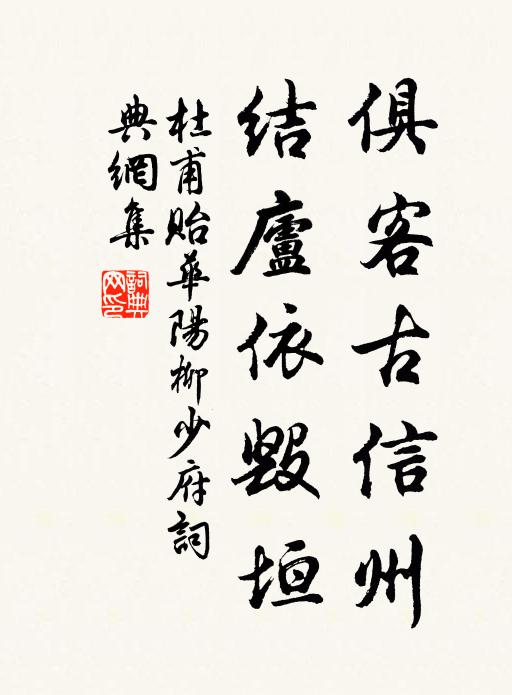 俱客古信州
結廬依毀垣
杜甫貽華陽柳少府詞
典網集
詞典網印